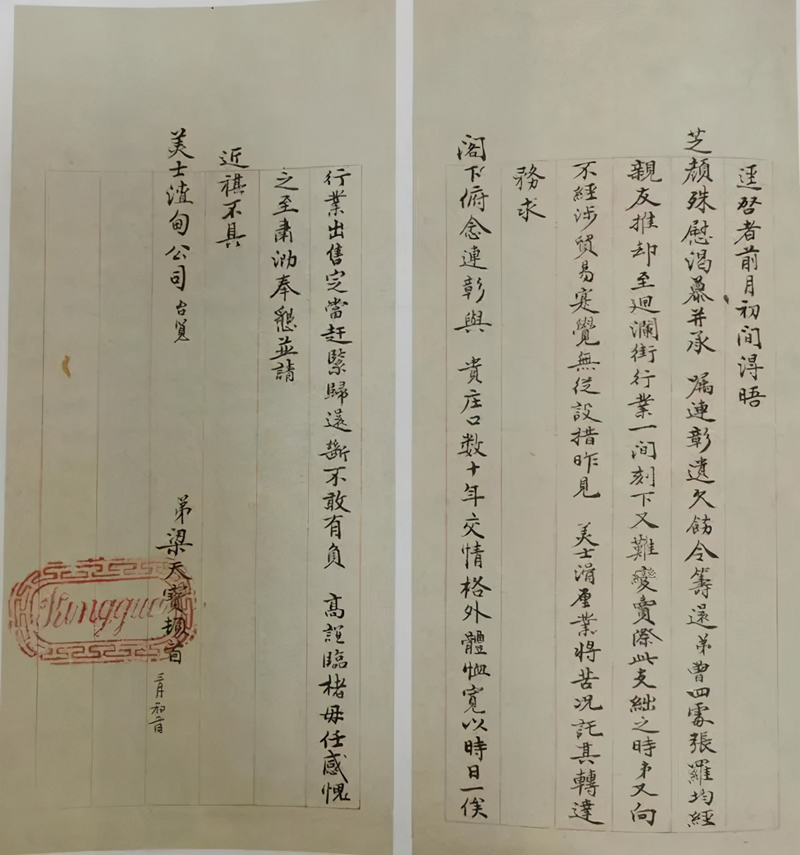 逕啓者前月初間得晤
芝顔殊慰渴慕并承 囑連彰遺欠飭令籌還弟曾四處張羅均經
親友推却至迴瀾街行業一間刻下又難變賣際此支絀之時弟又向
不經涉貿易寔覺無從設措昨見 美士涓厘業將苦況託其轉達
務求
閣下俯念連彰與 貴庄口数十年交情格外體恤寬以時日一俟
行業出售定當赶緊歸還斷不敢有負 高誼臨楮毋任感愧
之至肅泐奉懇並請
近祺不具
美士渣甸公司台覧
弟梁天寶頓首
三月初一日
Kongque